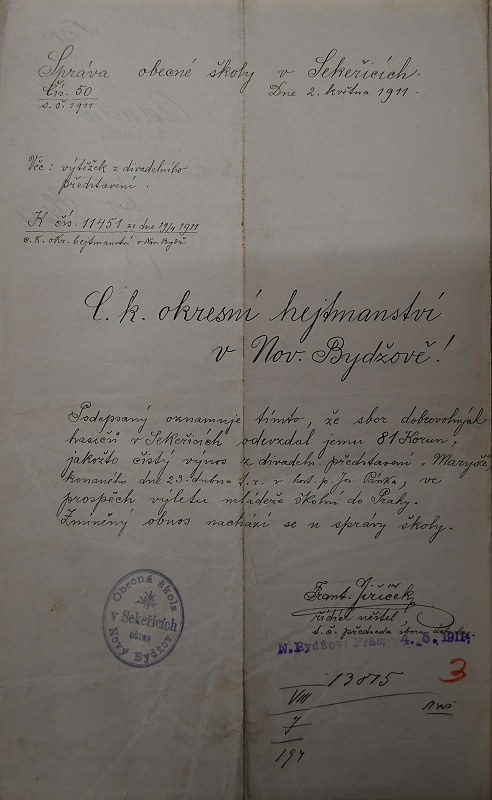 Správa obecné školy v Sekeřicích.
Čís. 50
s. š. 1911
Dne 2. května 1911.
Věc: výtěžek z divadelního
představení.
K čís. 11451 ze dne 19/4 1911
c. k. okr. hejtmanství v Nov. Bydž.
C. k. okresní hejtmanství
v Nov. Bydžově!
Podepsaný oznamuje tímto, že sbor dobrovolných
hasičů v Sekeřicích odevzdal jemu 81 Korun,
jakožto čistý výnos z divadeln. představení „Maryša
konaného dne 23. dubna t. r. v host. p. Jn. Pánka, ve
prospěch výletu mládeže školní do Prahy.
Zmíněný obnos nachází se u správy školy.
Frant. Jiřiček
řídící učitel
t. č. předseda sboru
Obecná škola
v Sekeřicích
okres
Nový Bydžov
N. Bydžov: Präs. 4. 5. 1911
3
13815
VIII
7
194